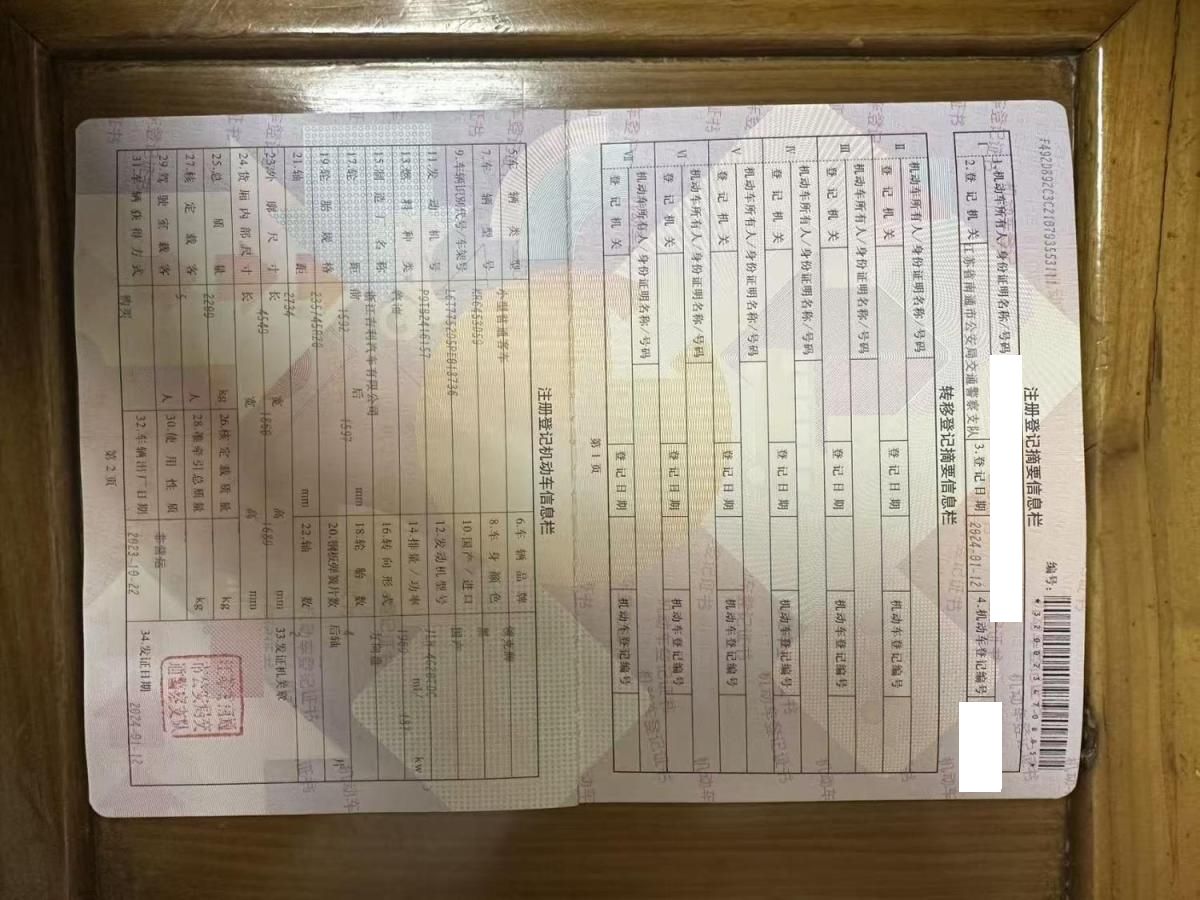 F492D892C3C2187935531111
注册登记摘要信息栏
编号:
I
1.机动车所有人/身份证明名称/号码
2.登记机关
江苏省南通市公安局交通警察支队
3.登记日期
2024-01-12
4.机动车登记编号
转移登记摘要信息栏
II
机动车所有人/身份证明名称/号码
登记机关
登记日期
机动车登记编号
III
机动车所有人/身份证明名称/号码
登记机关
登记日期
机动车登记编号
IV
机动车所有人/身份证明名称/号码
登记机关
登记日期
机动车登记编号
V
机动车所有人/身份证明名称/号码
登记机关
登记日期
机动车登记编号
VI
机动车所有人/身份证明名称/号码
登记机关
登记日期
机动车登记编号
VII
机动车所有人/身份证明名称/号码
登记机关
登记日期
机动车登记编号
第1页
注册登记机动车信息栏
5.车辆类型 小型普通客车 6.车辆品牌
7.车辆型号 8.车身颜色 黑
9.车辆识别代号/车架号 10.国产/进口 国产
11.发动机号 12.发动机型号
13.燃料种类 14.排量/功率 ml/ kw
15.制造厂名称 浙江吉利汽车有限公司 16.转向形式 方向盘
17.轮距 前 1592 后 1597 mm 18.轮胎数 4
19.轮胎规格 235/45R20 20.钢板弹簧片数 后轴 片
21.轴距 2734 mm 22.轴数 2
23.外廓尺寸 长 4549 宽 1860 高 1689 mm 33.发证机关章
24.货厢内部尺寸 长 宽 高 mm
25.总质量 kg 26.核定载质量 kg
27.核定载客 5 人 28.准牵引总质量 kg
29.驾驶室载客 人 30.使用性质 非营运
31.车辆获得方式 购买 32.车辆出厂日期 2023-10-22 34.发证日期 2024-01-12
第2页